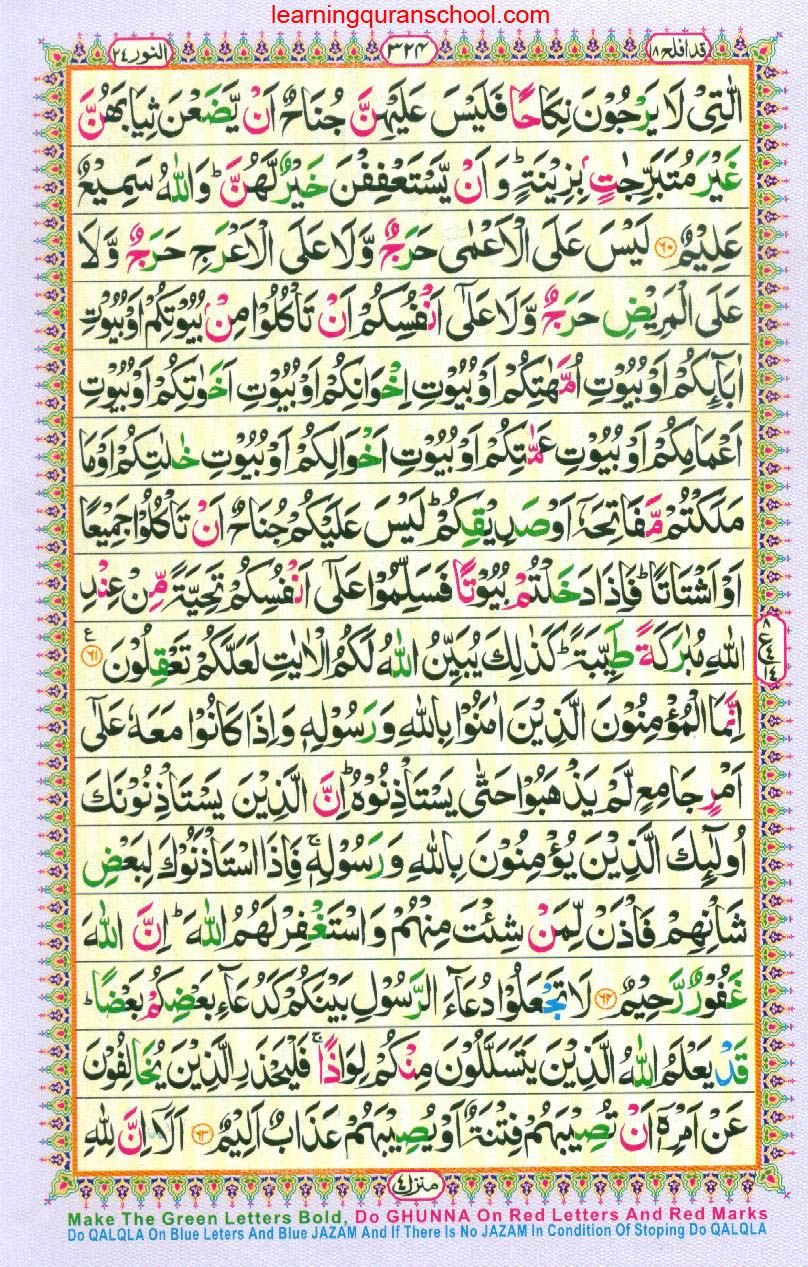 learningquranschool.com
قد افلح ١٨
٣٢٤
النور ٢٤
الّٰتِیْ لَا یَرْجُوْنَ نِكَاحًا فَلَیْسَ عَلَیْهِنَّ جُنَاحٌ اَنْ یَّضَعْنَ ثِیَابَهُنَّ
غَیْرَ مُتَبَرِّجٰتٍۭ بِزِیْنَةٍ ؕ وَ اَنْ یَّسْتَعْفِفْنَ خَیْرٌ لَّهُنَّ ؕ وَ اللّٰهُ سَمِیْعٌ
عَلِیْمٌ ۶۰ لَیْسَ عَلَی الْاَعْمٰی حَرَجٌ وَّ لَا عَلَی الْاَعْرَجِ حَرَجٌ وَّ لَا
عَلَی الْمَرِیْضِ حَرَجٌ وَّ لَا عَلٰۤی اَنْفُسِكُمْ اَنْ تَاْكُلُوْا مِنْۢ بُیُوْتِكُمْ اَوْ بُیُوْتِ
اٰبَآىِٕكُمْ اَوْ بُیُوْتِ اُمَّهٰتِكُمْ اَوْ بُیُوْتِ اِخْوَانِكُمْ اَوْ بُیُوْتِ اَخَوٰتِكُمْ اَوْ بُیُوْتِ
اَعْمَامِكُمْ اَوْ بُیُوْتِ عَمّٰتِكُمْ اَوْ بُیُوْتِ اَخْوَالِكُمْ اَوْ بُیُوْتِ خٰلٰتِكُمْ اَوْ مَا
مَلَكْتُمْ مَّفَاتِحَهٗۤ اَوْ صَدِیْقِكُمْ ؕ لَیْسَ عَلَیْكُمْ جُنَاحٌ اَنْ تَاْكُلُوْا جَمِیْعًا
اَوْ اَشْتَاتًا ؕ فَاِذَا دَخَلْتُمْ بُیُوْتًا فَسَلِّمُوْا عَلٰۤی اَنْفُسِكُمْ تَحِیَّةً مِّنْ عِنْدِ
اللّٰهِ مُبٰرَكَةً طَیِّبَةً ؕ كَذٰلِكَ یُبَیِّنُ اللّٰهُ لَكُمُ الْاٰیٰتِ لَعَلَّكُمْ تَعْقِلُوْنَ ۶۱ ع
اِنَّمَا الْمُؤْمِنُوْنَ الَّذِیْنَ اٰمَنُوْا بِاللّٰهِ وَ رَسُوْلِهٖ وَ اِذَا كَانُوْا مَعَهٗ عَلٰۤی
اَمْرٍ جَامِعٍ لَّمْ یَذْهَبُوْا حَتّٰی یَسْتَاْذِنُوْهُ ؕ اِنَّ الَّذِیْنَ یَسْتَاْذِنُوْنَكَ
اُولٰٓىِٕكَ الَّذِیْنَ یُؤْمِنُوْنَ بِاللّٰهِ وَ رَسُوْلِهٖ ۚ فَاِذَا اسْتَاْذَنُوْكَ لِبَعْضِ
شَاْنِهِمْ فَاْذَنْ لِّمَنْ شِئْتَ مِنْهُمْ وَ اسْتَغْفِرْ لَهُمُ اللّٰهَ ؕ اِنَّ اللّٰهَ
غَفُوْرٌ رَّحِیْمٌ ۶۲ لَا تَجْعَلُوْا دُعَآءَ الرَّسُوْلِ بَیْنَكُمْ كَدُعَآءِ بَعْضِكُمْ بَعْضًا ؕ
قَدْ یَعْلَمُ اللّٰهُ الَّذِیْنَ یَتَسَلَّلُوْنَ مِنْكُمْ لِوَاذًا ۚ فَلْیَحْذَرِ الَّذِیْنَ یُخَالِفُوْنَ
عَنْ اَمْرِهٖۤ اَنْ تُصِیْبَهُمْ فِتْنَةٌ اَوْ یُصِیْبَهُمْ عَذَابٌ اَلِیْمٌ ۶۳ اَلَاۤ اِنَّ لِلّٰهِ
منزل ٤
Make The Green Letters Bold, Do GHUNNA On Red Letters And Red Marks
Do QALQLA On Blue Leters And Blue JAZAM And If There Is No JAZAM In Condition Of Stoping Do QALQLA